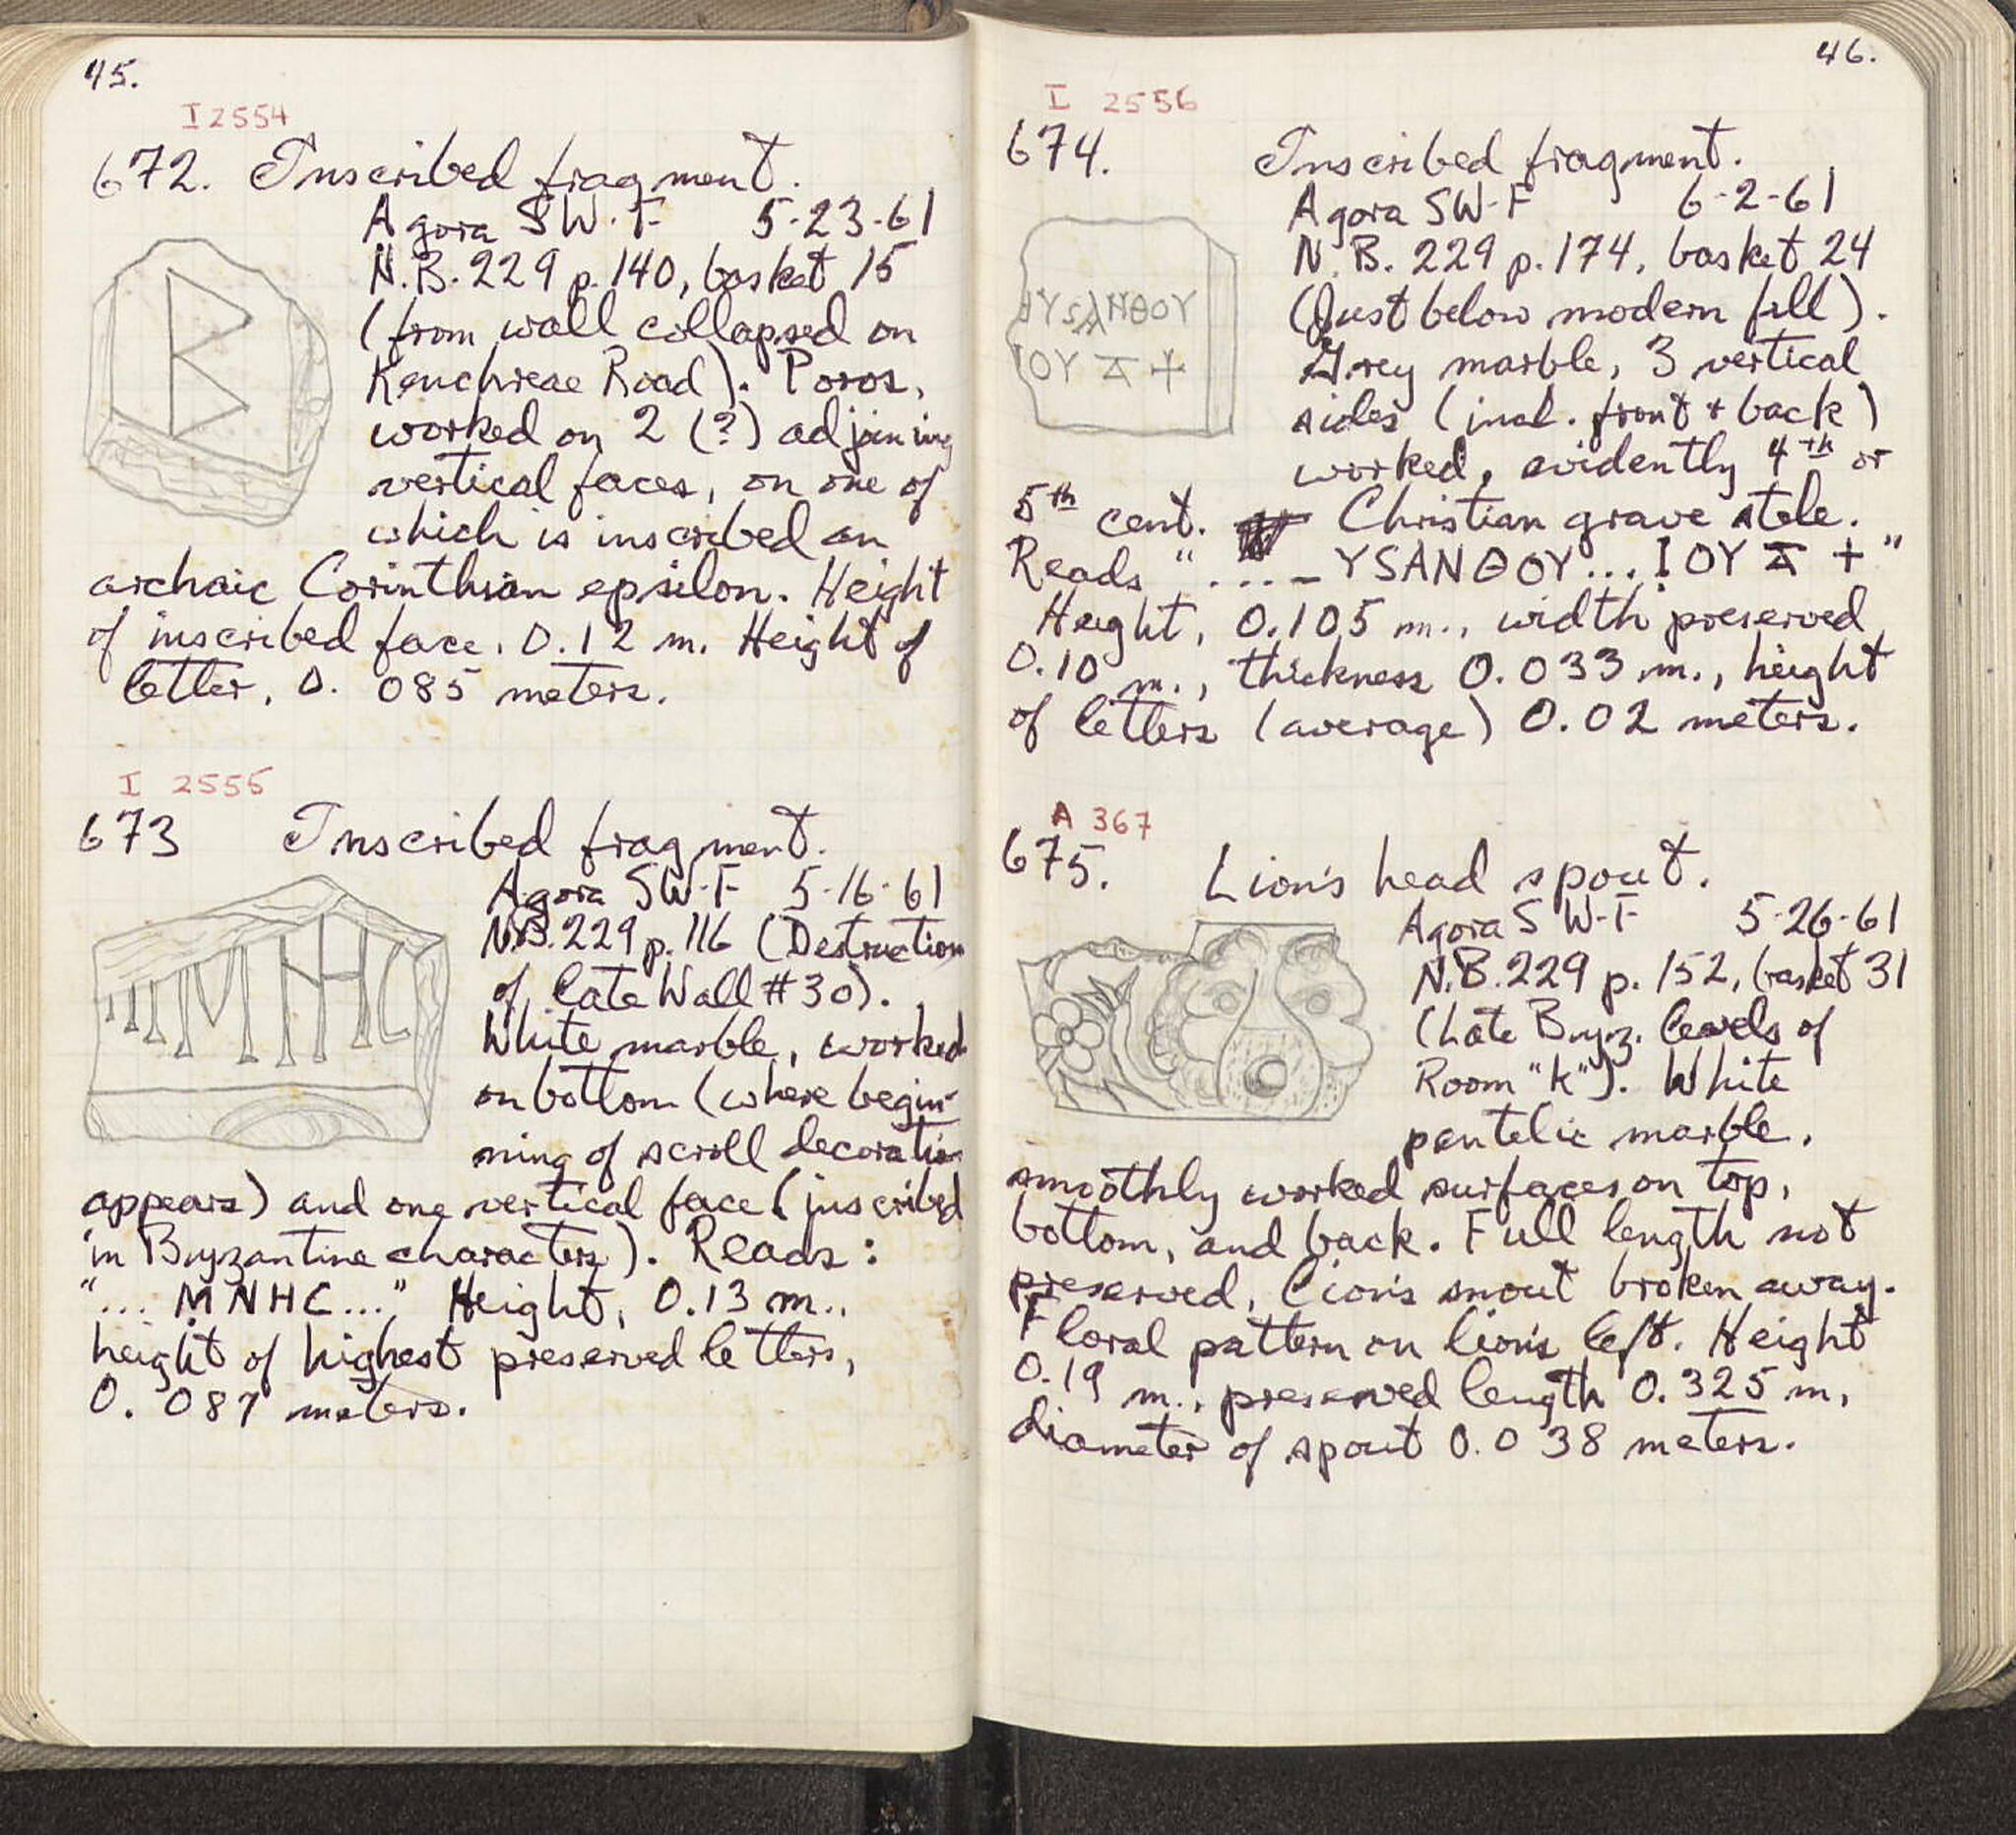 45.
I 2554
672. Inscribed fragment.
Agora SW-F 5-23-61
N.B. 229 p. 140, basket 15
(from wall collapsed on
Kenchreae Road). Poros,
worked on 2 (?) adjoining
vertical faces, on one of
which is inscribed an
archaic Corinthian epsilon. Height
of inscribed face, 0.12 m. Height of
letter, 0.085 meters.
I 2555
673 Inscribed fragment.
Agora SW-F 5-16-61
N.B. 229 p. 116 (Destruction
of Late Wall #30).
White marble, worked
on bottom (where begin-
ning of scroll decoration
appears) and one vertical face (inscribed
in Byzantine characters). Reads:
"... MNHC..." Height, 0.13 m.,
height of highest preserved letters,
0.087 meters.
MHC
46.
I 2556
674. Inscribed fragment.
Agora SW-F 6-2-61
N.B. 229 p. 174, basket 24
(Just below modern fill).
Grey marble, 3 vertical
sides (incl. front + back)
worked, evidently 4th or
5th cent. Christian grave stele.
Reads "....–YSANΘOY...IOY ⊼ +"
Height, 0.105 m., width preserved
0.10 m., thickness 0.033 m., height
of letters (average) 0.02 meters.
YSANΘOY
IOY ⊼ +
A 367
675. Lion's head spout.
Agora SW-F 5-26-61
N.B. 229 p. 152, basket 31
(Late Byz. levels of
Room "K"). White
pentelic marble,
smoothly worked surfaces on top,
bottom, and back. Full length not
preserved, lion's snout broken away.
Floral pattern on lion's left. Height
0.19 m., preserved length 0.325 m,
diameter of spout 0.038 meters.